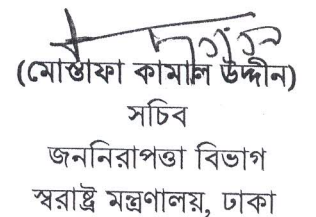 (মোস্তাফা কামাল উদ্দীন)
সচিব
জননিরাপত্তা বিভাগ
স্বরাষ্ট্র মন্ত্রণালয়, ঢাকা